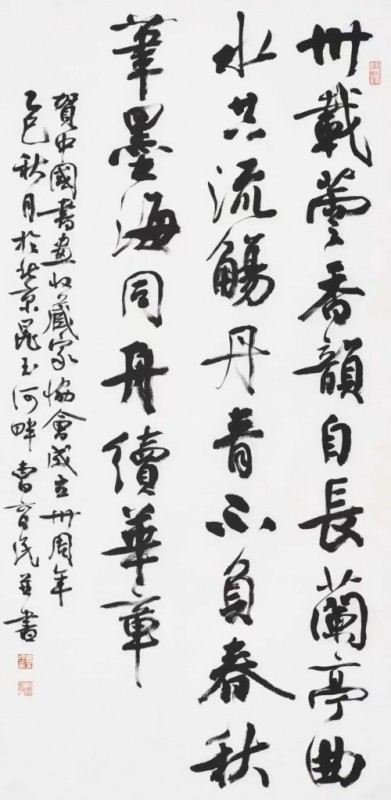 卅載蕓香韻自長蘭亭曲
水共流觴丹青不負春秋
筆墨海同舟續華章
賀中國書畫收藏家協會成立卅周年
乙巳秋月於北京昆玉河畔曹民並書